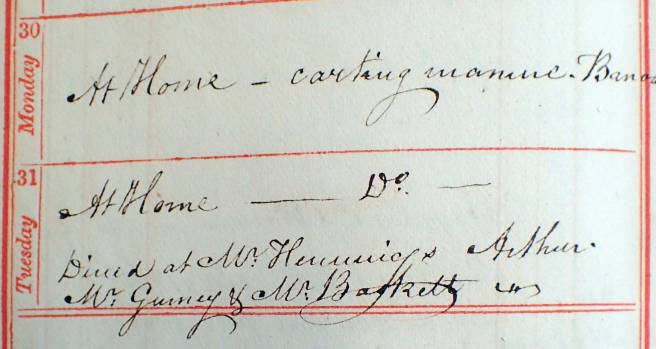 30
Monday
At Home — carting manure.
31
Tuesday
At Home — Do. —
Dined at Mr. Arthur.
Mr. Gurney & Mr. Baskett